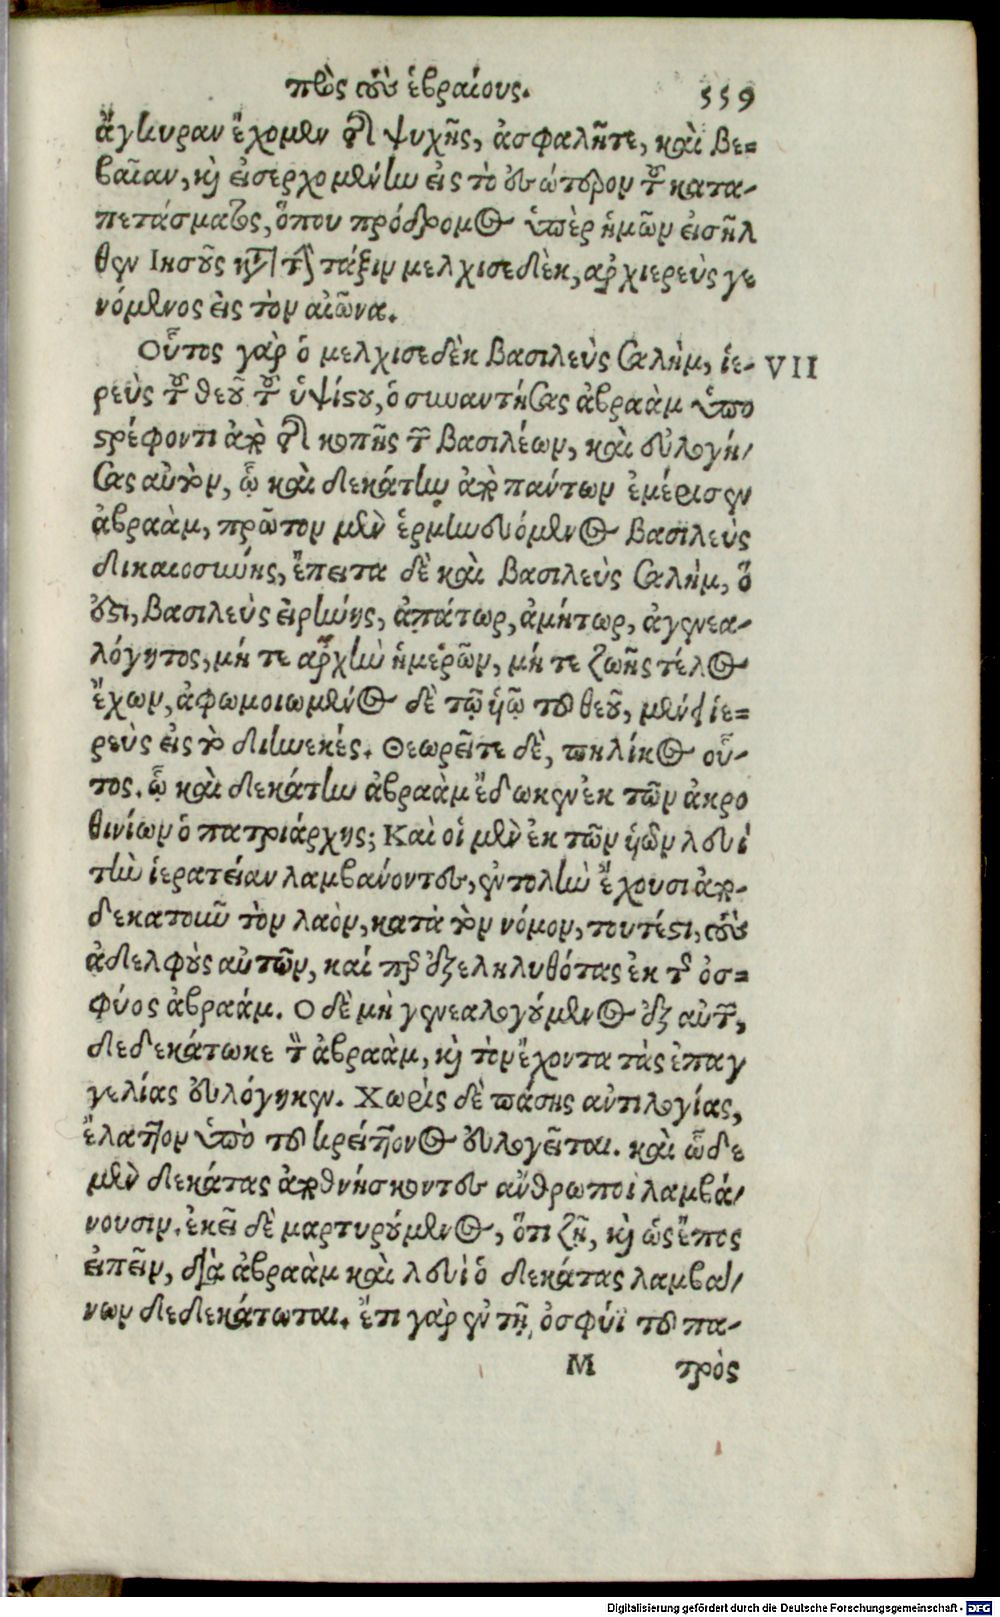 πρὸς τοὺς ἑβραίους. 559
ἄγκυραν ἔχομεν τῆς ψυχῆς, ἀσφαλῆτε, καὶ βε=
βαῖαν, καὶ εἰσερχομένην εἰς τὸ ἐσώτερον τοῦ κατα-
πετάσματος, ὅπου πρόδρομος ὑπὲρ ἡμῶν εἰσῆλ
θεν Ιησοῦς κατὰ τὴν τάξιν μελχισεδὲκ, ἀρχιερεὺς γε
νόμενος εἰς τὸν αἰῶνα.
Οὗτος γὰρ ὁ μελχισεδὲκ βασιλεὺς Σαλὴμ, ἱε- VII
ρεὺς τοῦ θεοῦ τοῦ ὑψίστου, ὁ συναντήσας ἀβραὰμ ὑπο
στρέφοντι ἀπὸ τῆς κοπῆς τῶν βασιλέων, καὶ εὐλογή/
σας αὐτὸν, ᾧ καὶ δεκάτην ἀπὸ πάντων ἐμέρισεν
ἀβραὰμ, πρῶτον μὲν ἑρμηνευόμενος βασιλεὺς
δικαιοσύνης, ἔπειτα δὲ καὶ βασιλεὺς Σαλὴμ, ὅ
ἐστι, βασιλεὺς εἰρήνης, ἀπάτωρ, ἀμήτωρ, ἀγενεα-
λόγητος, μή τε ἀρχὴν ἡμερῶν, μή τε ζωῆς τέλος
ἔχων, ἀφωμοιωμένος δὲ τῷ ὑῷ τοῦ θεοῦ, μένει ἱε=
ρεὺς εἰς τὸ διηνεκές. Θεωρεῖτε δὲ, πηλίκος οὗ-
τος. ᾧ καὶ δεκάτην ἀβραὰμ ἔδωκεν ἐκ τῶν ἀκρο
θινίων ὁ πατριάρχης; Καὶ οἱ μὲν ἐκ τῶν ὑῶν λευὶ
τὴν ἱερατείαν λαμβάνοντες, ἐντολὴν ἔχουσι ἀπο-
δεκατοῦν τὸν λαὸν, κατὰ τὸν νόμον, τουτέστι, τοὺς
ἀδελφοὺς αὐτῶν, καί περ ἐξεληλυθότας ἐκ τῆς ὀσ=
φύος ἀβραάμ. Ο δὲ μὴ γενεαλογούμενος ἐξ αὐτῶν,
δεδεκάτωκε τὸν ἀβραὰμ, καὶ τὸν ἔχοντα τὰς ἐπαγ
γελίας εὐλόγηκεν. Χωρὶς δὲ πάσης αντιλογίας,
ἔλαττον ὑπὸ τοῦ κρείττονος εὐλογεῖται. καὶ ὧδε
μὲν δεκάτας ἀποθνήσκοντες ἄνθρωποι λαμβά/
νουσιν. ἐκεῖ δὲ μαρτυρούμενος, ὅτι ζῇ, καὶ ὡς ἔπος
εἰπεῖν, διὰ ἀβραὰμ καὶ λευὶ ὁ δεκάτας λαμβά/
νων δεδεκάτωται. ἔτι γὰρ ἐν τῇ ὀσφύϊ τοῦ πα-
M τρὸς
Digitalisierung gefördert durch die Deutsche Forschungsgemeinschaft - DFG